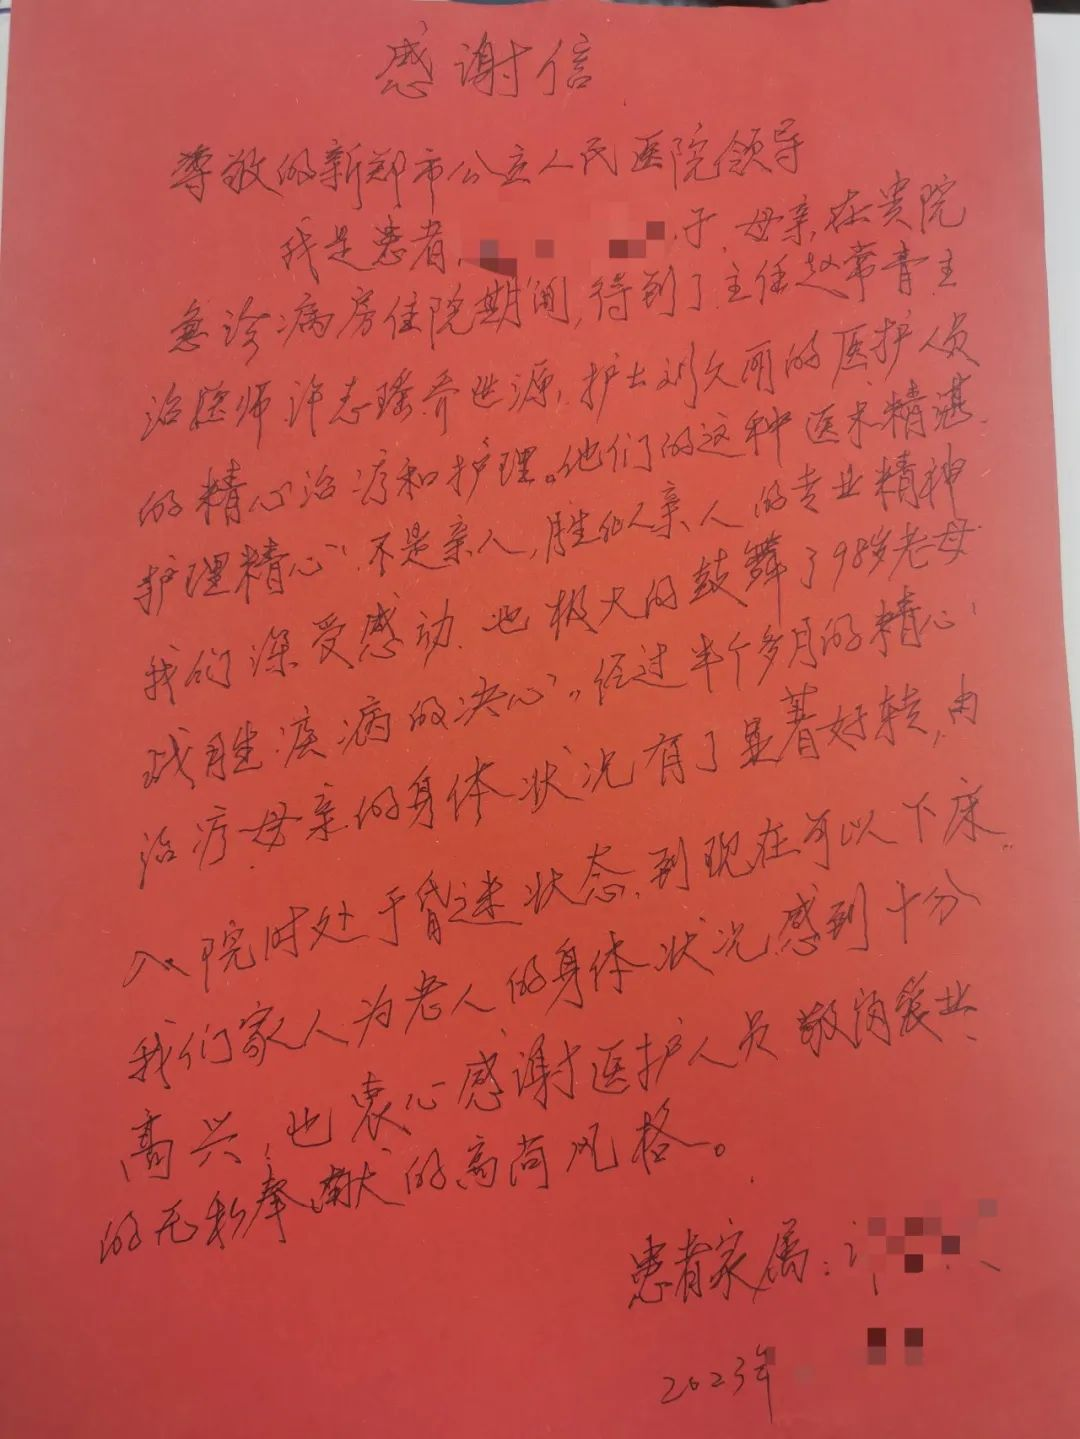 感谢信
尊敬的新郑市公立人民医院领导
我是患者 子,母亲在贵院
急诊病房住院期间,得到了主任赵常青主
治医师许志瑶乔世源,护士刘久丽的医护人员
的精心治疗和护理。他们的这种医术精湛.
护理精心"不是亲人,胜似亲人的专业精神
我们深受感动.也极大的鼓舞了98岁老母
战胜疾病的决心"。经过半个多月的精心
治疗母亲的身体状况有了显著好转,由
入院时处于昏迷状态,到现在可以下床。
我们家人为老人的身体状况感到十分
高兴,也衷心感谢医护人员敬岗爱业、
的无私奉献的高尚风格。
患者家属:
2023年